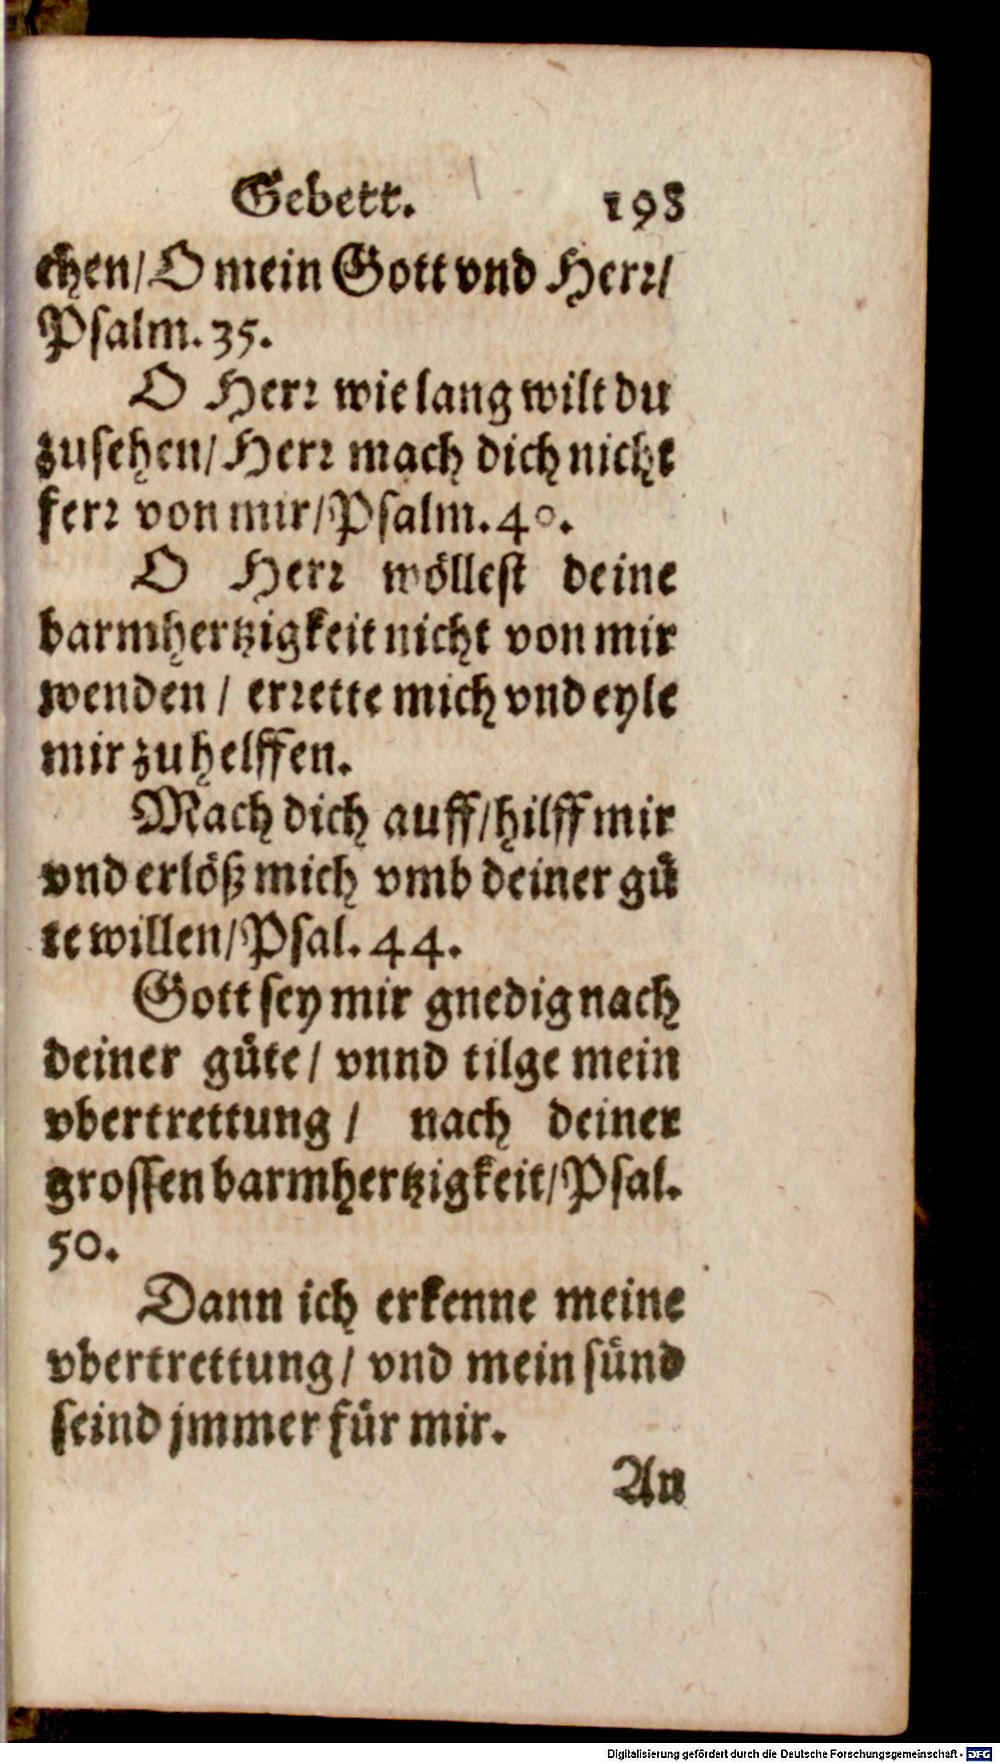 Gebett. 198
chen/ O mein Gott vnd Herr/
Psalm. 35.
O Herr wie lang wilt du
zusehen/ Herr mach dich nicht
ferr von mir/ Psalm. 40.
O Herr wöllest deine
barmhertzigkeit nicht von mir
wenden / errette mich vnd eyle
mir zu helffen.
Mach dich auff/ hilff mir
vnd erlöß mich vmb deiner gü
te willen/ Psal. 44.
Gott sey mir gnedig nach
deiner güte/ vnnd tilge mein
vbertrettung / nach deiner
grossen barmhertzigkeit/ Psal.
50.
Dann ich erkenne meine
vbertrettung/ vnd mein sünd
seind jmmer für mir.
An
Digitalisierung gefördert durch die Deutsche Forschungsgemeinschaft - DFG